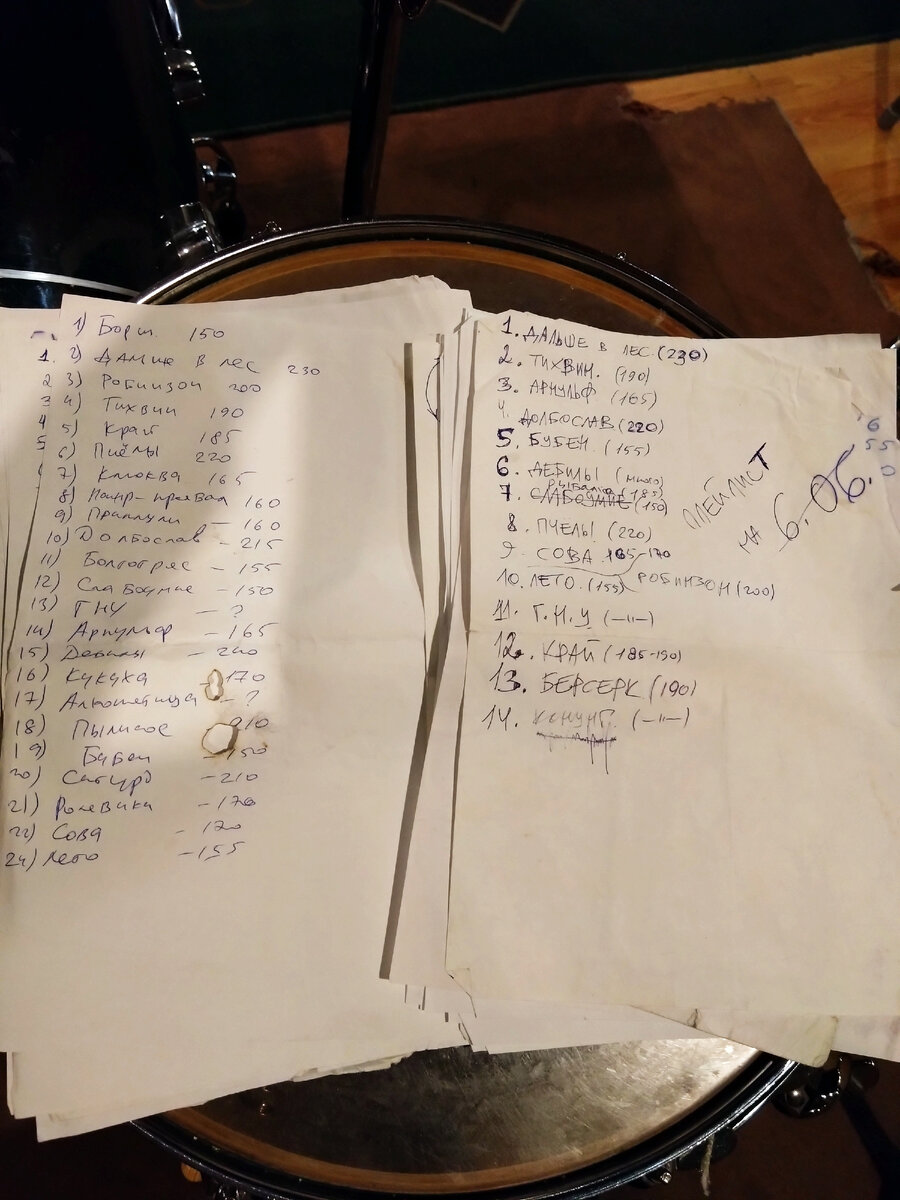 1) Борщ. 150
1. 2) Дальше в лес 230
2 3) Робинзон 200
3 4) Тихвин 190
4 5) Край 185
5 6) Пчёлы 220
7) Клюква 165
8) 160
9) - 160
10) Долбослав - 215
11) - 155
12) Слабоумие - 150
13) ГНУ - ?
14) Арнульф - 165
15) Дебилы - 200
16) Кукуха - 170
17) - ?
18) 210
19) Бубен - 150
20) Сабтурд - 210
21) Ролевики - 170
22) Сова - 170
24) Лето - 155
1. ДАЛЬШЕ В ЛЕС. (230)
2. ТИХВИН. (190)
3. АРНУЛЬФ (165)
4. ДОЛБОСЛАВ (220)
5. БУБЕН. (155)
6. ДЕБИЛЫ (много)
РЫБАЛКА (185)
7. СЛАБОУМИЕ (150)
8. ПЧЕЛЫ (220)
9. СОВА. 165-170
10. ЛЕТО. (155) РОБИНЗОН (200)
11. Г.Н.У (—ıı—)
12. КРАЙ (185-190)
13. БЕРСЕРК (190)
14. КОНУНГ. (—ıı—)
ПЛЕЙЛИСТ
НА 6.06.
6
55
0